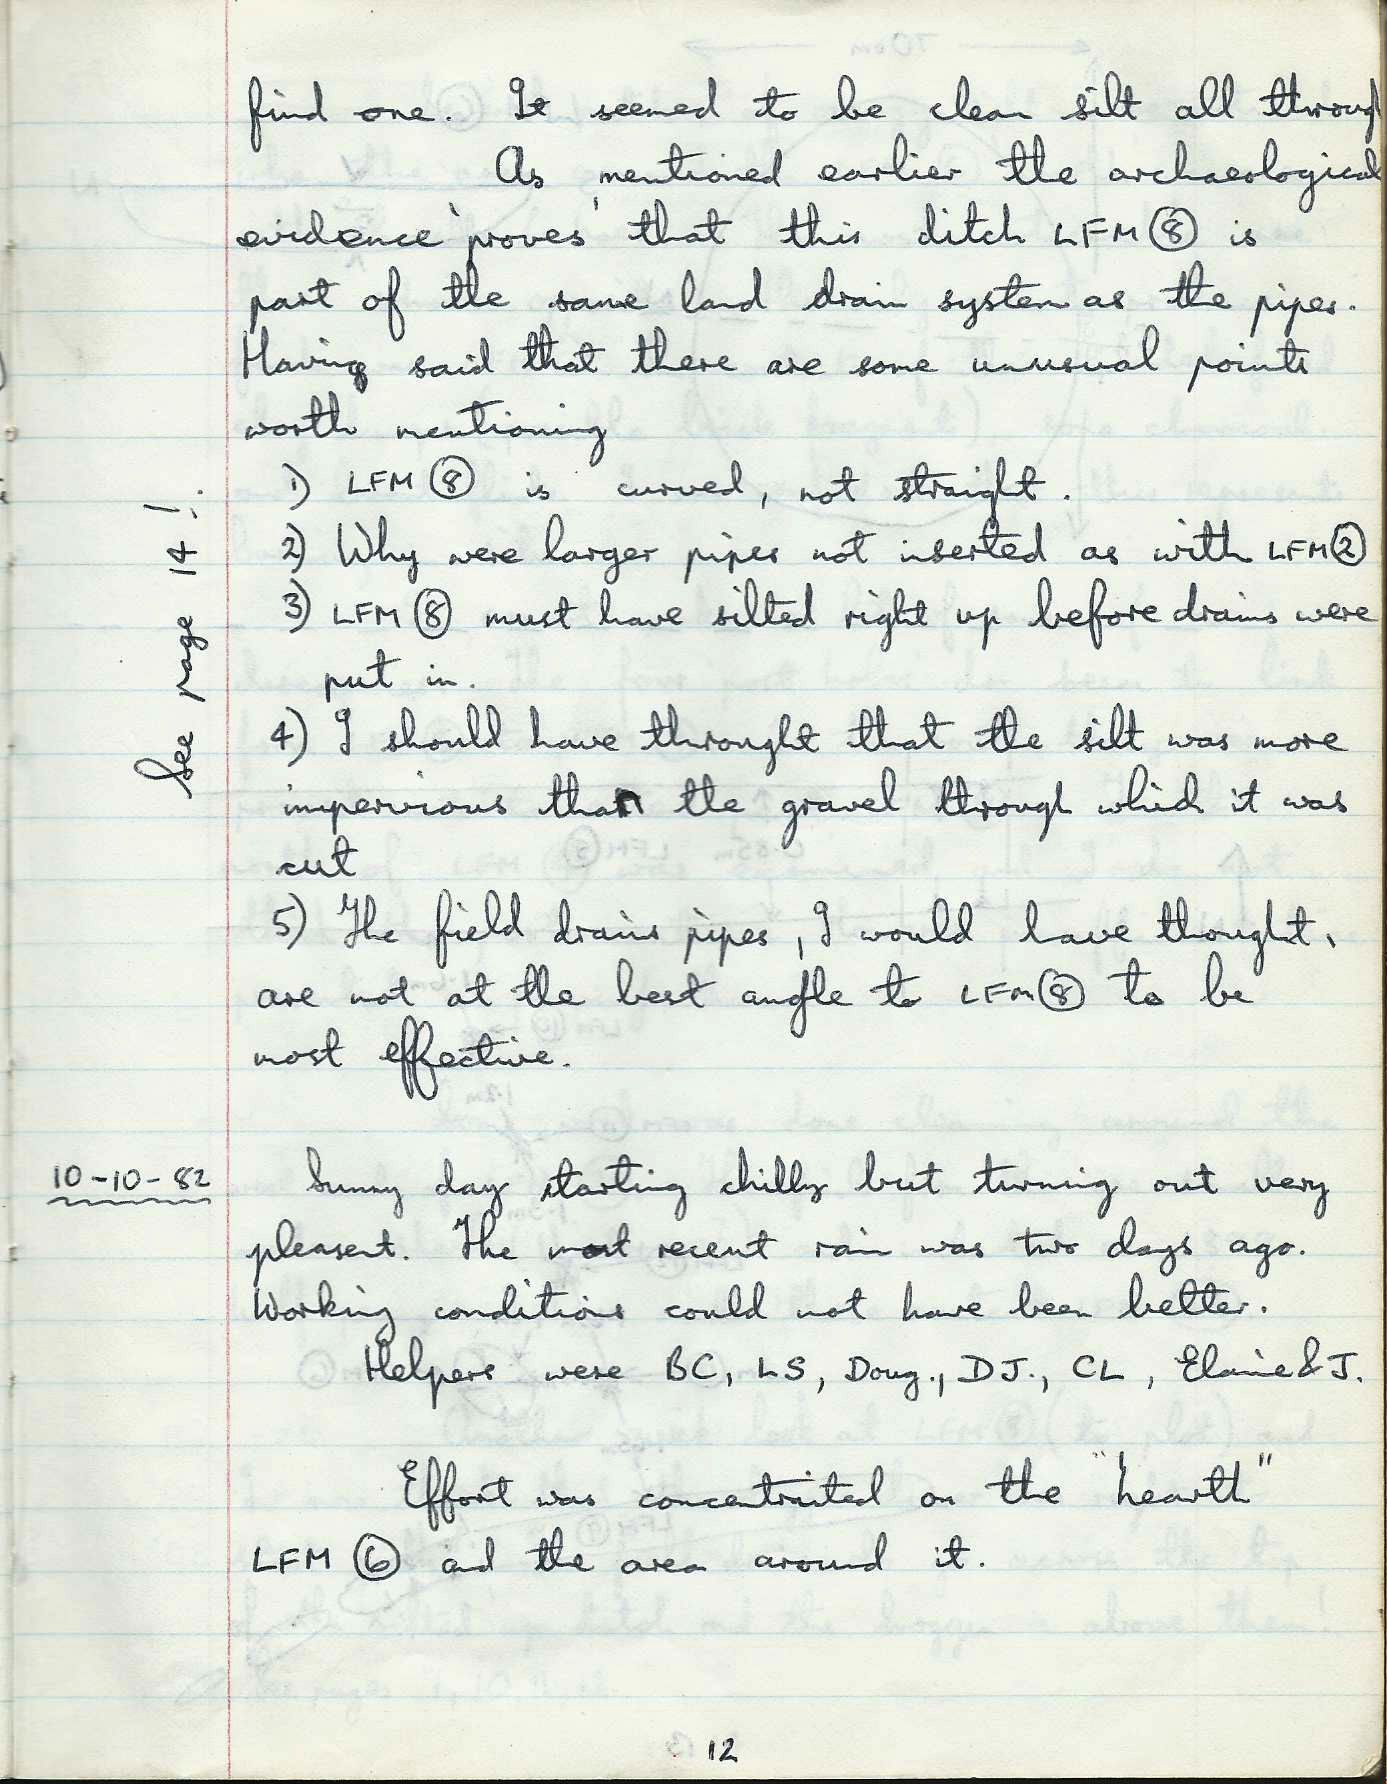 find one. It seemed to be clean silt all through
As mentioned earlier the archaeological
evidence 'proves' that this ditch LFM ⑧ is
part of the same land drain system as the pipes.
Having said that there are some unusual points
worth mentioning
1) LFM ⑧ is curved, not straight.
2) Why were larger pipes not inserted as with LFM ②
3) LFM ⑧ must have silted right up before drains were
put in.
See page 14!
4) I should have throught that the silt was more
impervious than the gravel through which it was
cut
5) The field drains pipes, I would have thought,
are not at the best angle to LFM ⑧ to be
most effective.
10-10-82
Sunny day starting chilly but turning out very
pleasent. The most recent rain was two days ago.
Working conditions could not have been better.
Helpers were BC, LS, Doug., DJ., CL, Elaine & J.
Effort was concentraited on the "hearth"
LFM ⑥ and the area around it.
12